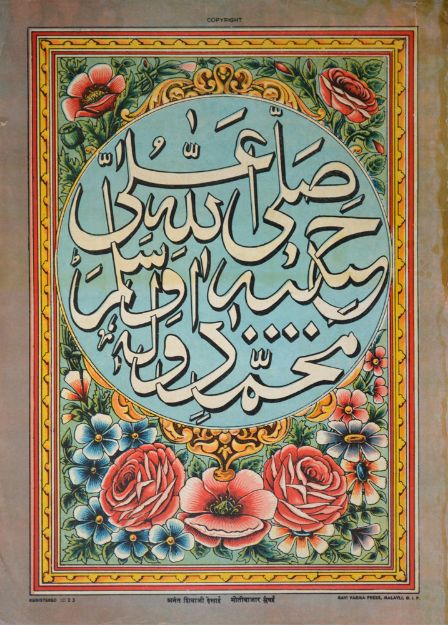 COPYRIGHT
صلى الله على
حبيبه
محمد وآله وسلم
REGISTERED
अनंत शिवाजी देसाई मोतीबाजार मुंबई
RAVI VARMA PRESS, MALAVLI, G. I. P.